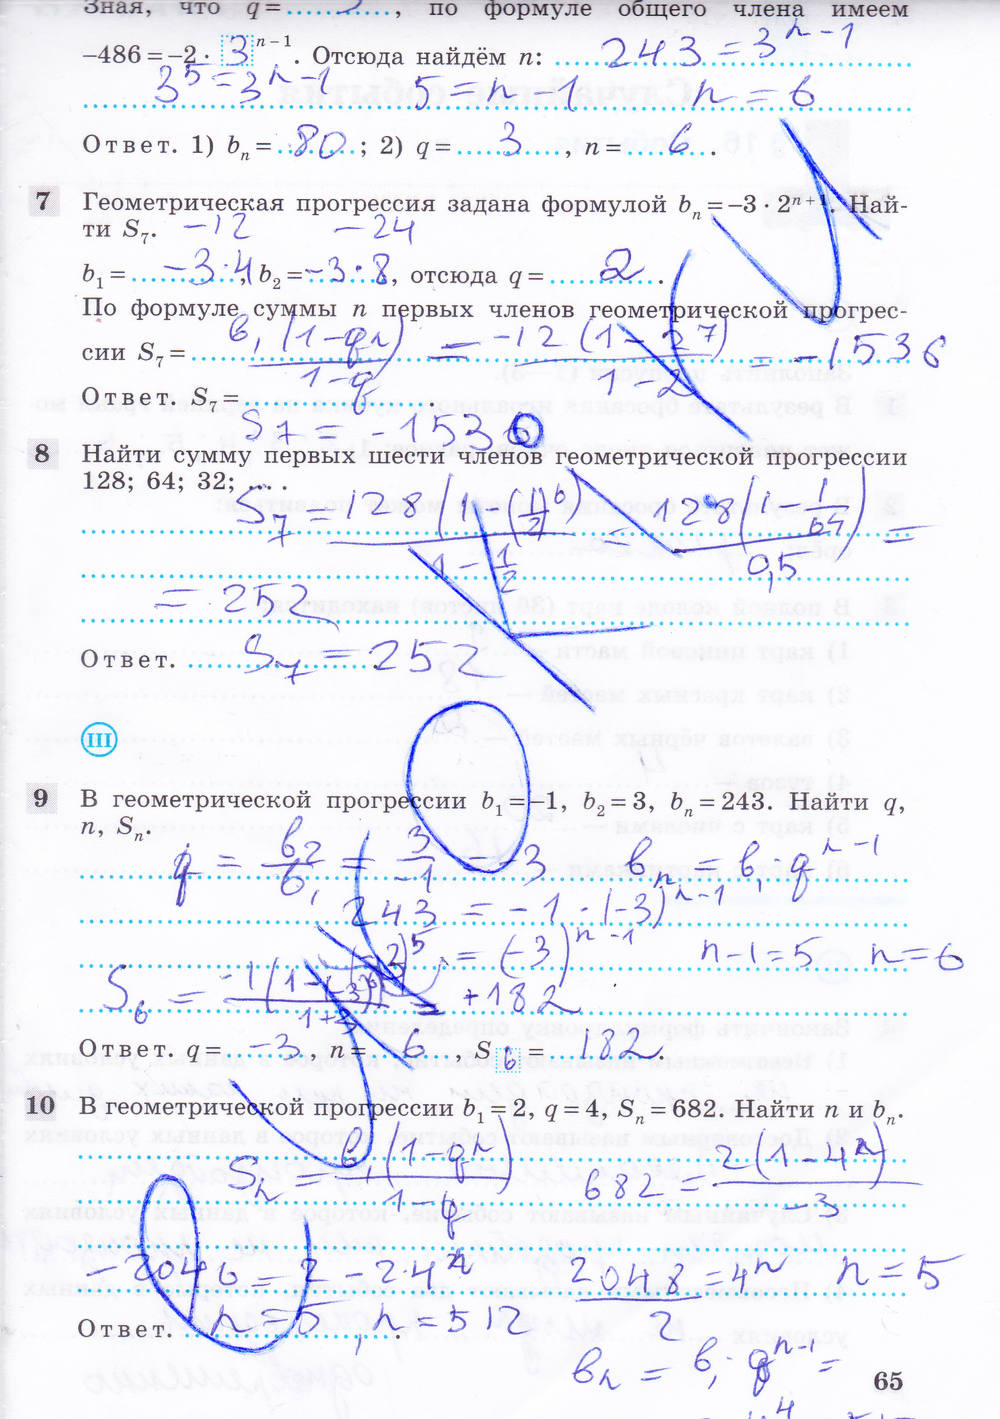 Зная, что q = 3, по формуле общего члена имеем
–486 = –2 · 3^(n – 1). Отсюда найдём n: 243 = 3^(n-1)
3^5 = 3^(n-1) 5 = n - 1 n = 6
Ответ. 1) b_n = 80; 2) q = 3, n = 6.
7 Геометрическая прогрессия задана формулой b_n = –3 · 2^(n + 1). Най-
ти S_7. -12 -24
b_1 = -3·4, b_2 = -3·8, отсюда q = 2.
По формуле суммы n первых членов геометрической прогрес-
сии S_7 = b_1(1-q^n)/(1-q) = -12(1-2^7)/(1-2) = -1536
Ответ. S_7 =
S_7 = -1536
8 Найти сумму первых шести членов геометрической прогрессии
128; 64; 32; ... .
S_7 = 128(1-(1/2)^6)/(1-1/2) 128(1-1/64)/0,5 =
= 252
Ответ. S_7 = 252
III
9 В геометрической прогрессии b_1 = –1, b_2 = 3, b_n = 243. Найти q,
n, S_n.
q = b_2/b_1 = 3/-1 = -3 b_n = b_1 q^(n-1)
243 = -1·(-3)^(n-1)
= (-3)^(n-1) n-1=5 n=6
S_6 = -1(1-(-3)^6)/(1+3) = +182
Ответ. q = -3, n = 6, S_6 = 182.
10 В геометрической прогрессии b_1 = 2, q = 4, S_n = 682. Найти n и b_n.
S_n = b_1(1-q^n)/(1-q) 682 = 2(1-4^n)/-3
-2046 = 2 - 2·4^n 2048/2 = 4^n n = 5
Ответ. n = 5, n = 512
b_n = b_1·q^(n-1) =
65